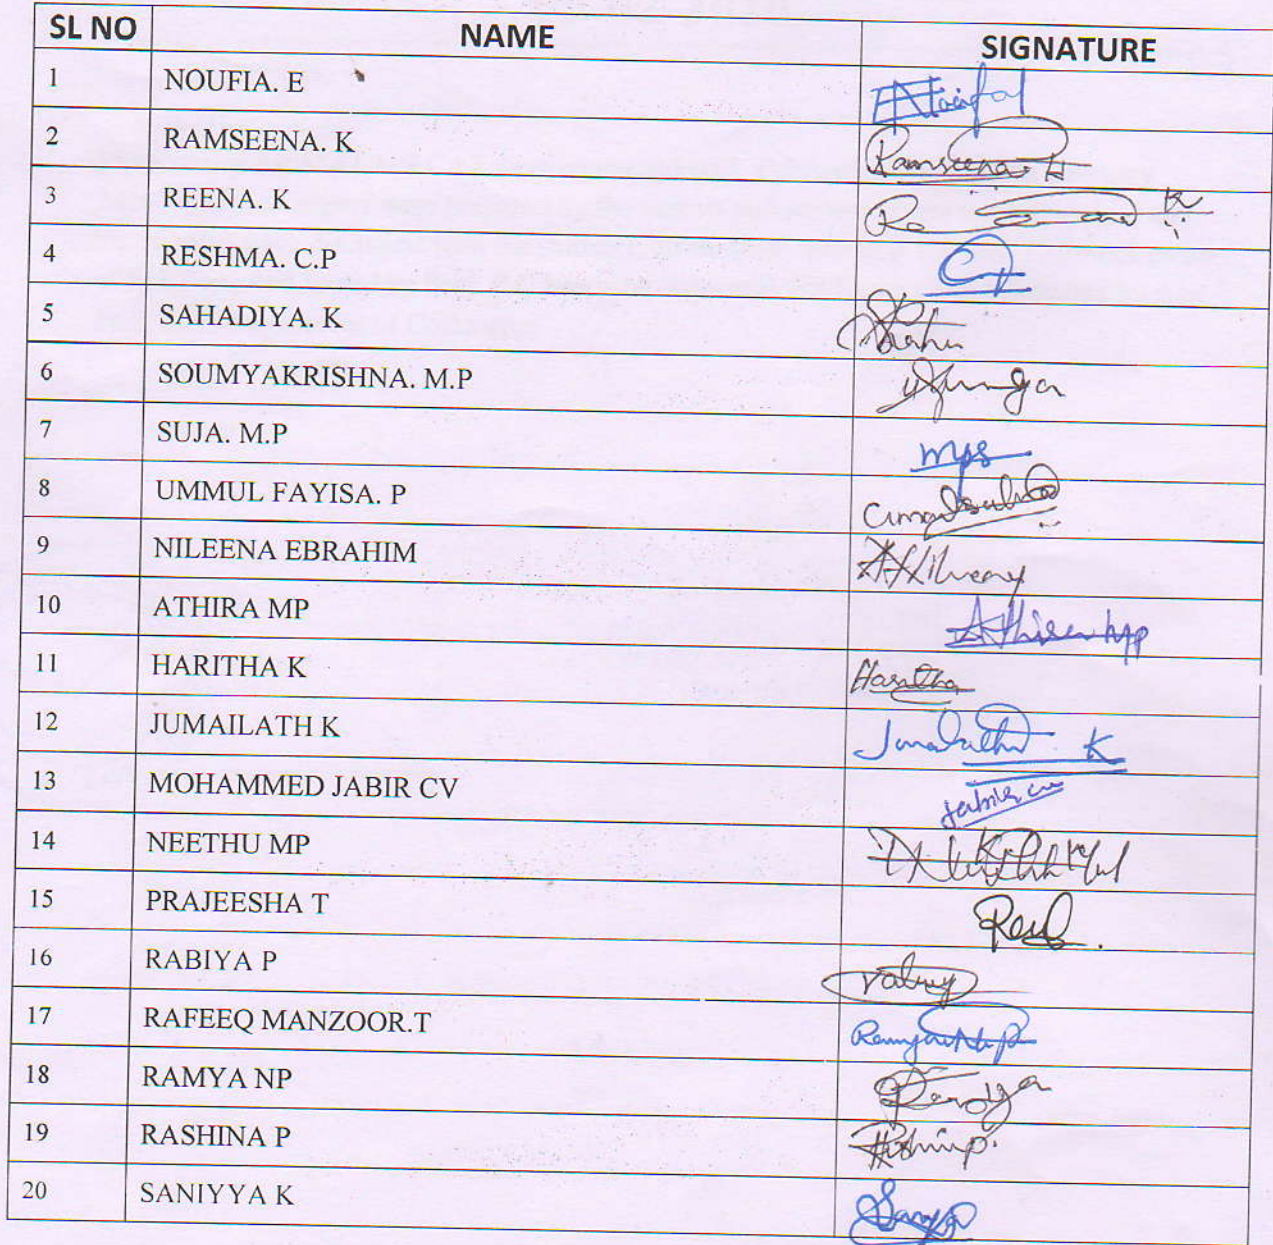 SL NO NAME SIGNATURE
1 NOUFIA. E
2 RAMSEENA. K Ramseena K
3 REENA. K
4 RESHMA. C.P
5 SAHADIYA. K
6 SOUMYAKRISHNA. M.P
7 SUJA. M.P mps
8 UMMUL FAYISA. P
9 NILEENA EBRAHIM
10 ATHIRA MP Athira Mp
11 HARITHA K Haritha
12 JUMAILATH K
13 MOHAMMED JABIR CV Jabir cv
14 NEETHU MP
15 PRAJEESHA T
16 RABIYA P
17 RAFEEQ MANZOOR.T
18 RAMYA NP
19 RASHINA P
20 SANIYYA K